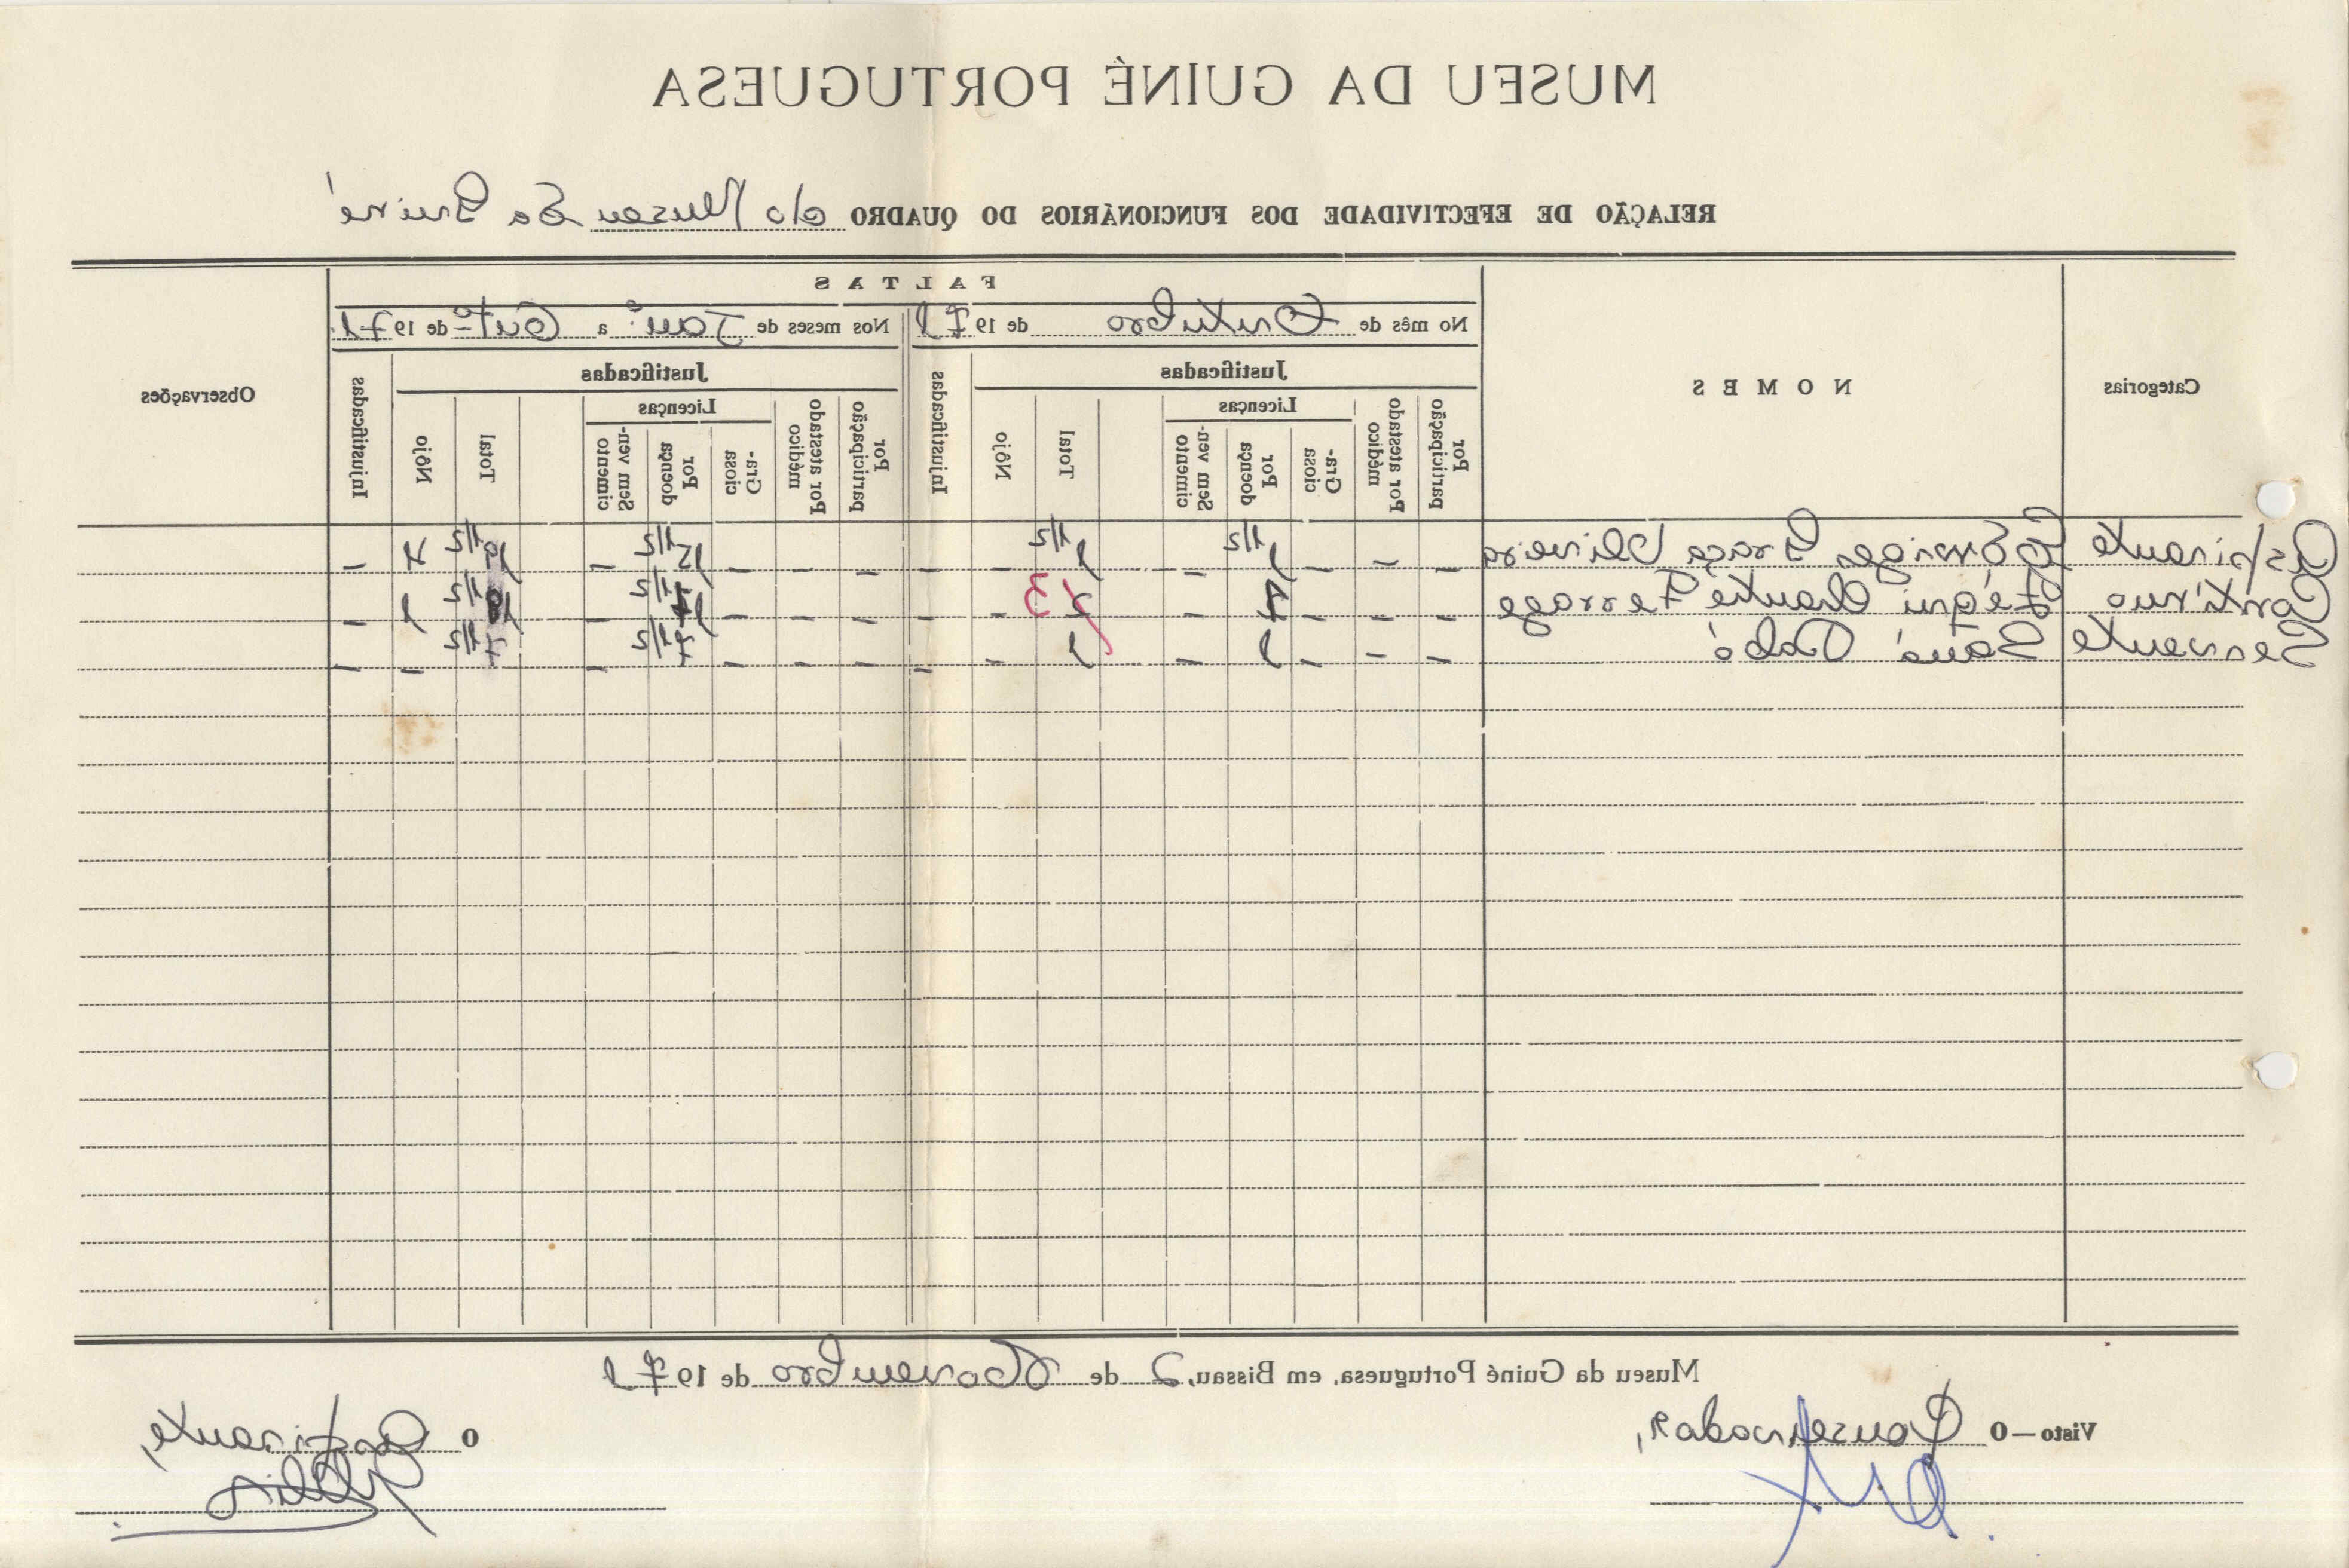 MUSEU DA GUINÉ PORTUGUESA
RELAÇÃO DE EFECTIVIDADE DOS FUNCIONÁRIOS DO QUADRO do Museu da Guiné
Categorias
NOMES
FALTAS
Observações
No mês de Outubro de 1971
Nos meses de Jan.º a Out.º de 1971
Justificadas
Injustificadas
Justificadas
Injustificadas
Por participação
Por atestado médico
Licenças
Gra-ciosa
Por doença
Sem ven-cimento
Total
Nôjo
Por participação
Por atestado médico
Licenças
Gra-ciosa
Por doença
Sem ven-cimento
Total
Nôjo
Aspirante Edwiges Graça Oliveira - - - 1 1/2 - 1 1/2 - - - - - 15 1/2 - 19 1/2 4 -
Contínuo Infante Ferrage - - - - 2 3 - - - - - - 1 -
Servente Saná Dabó - - - 1 - 1 - - - - - 7 1/2 - 7 1/2 - -
Museu da Guiné Portuguesa, em Bissau, 2 de Novembro de 1971
Visto—O Conservador,
O Aspirante,